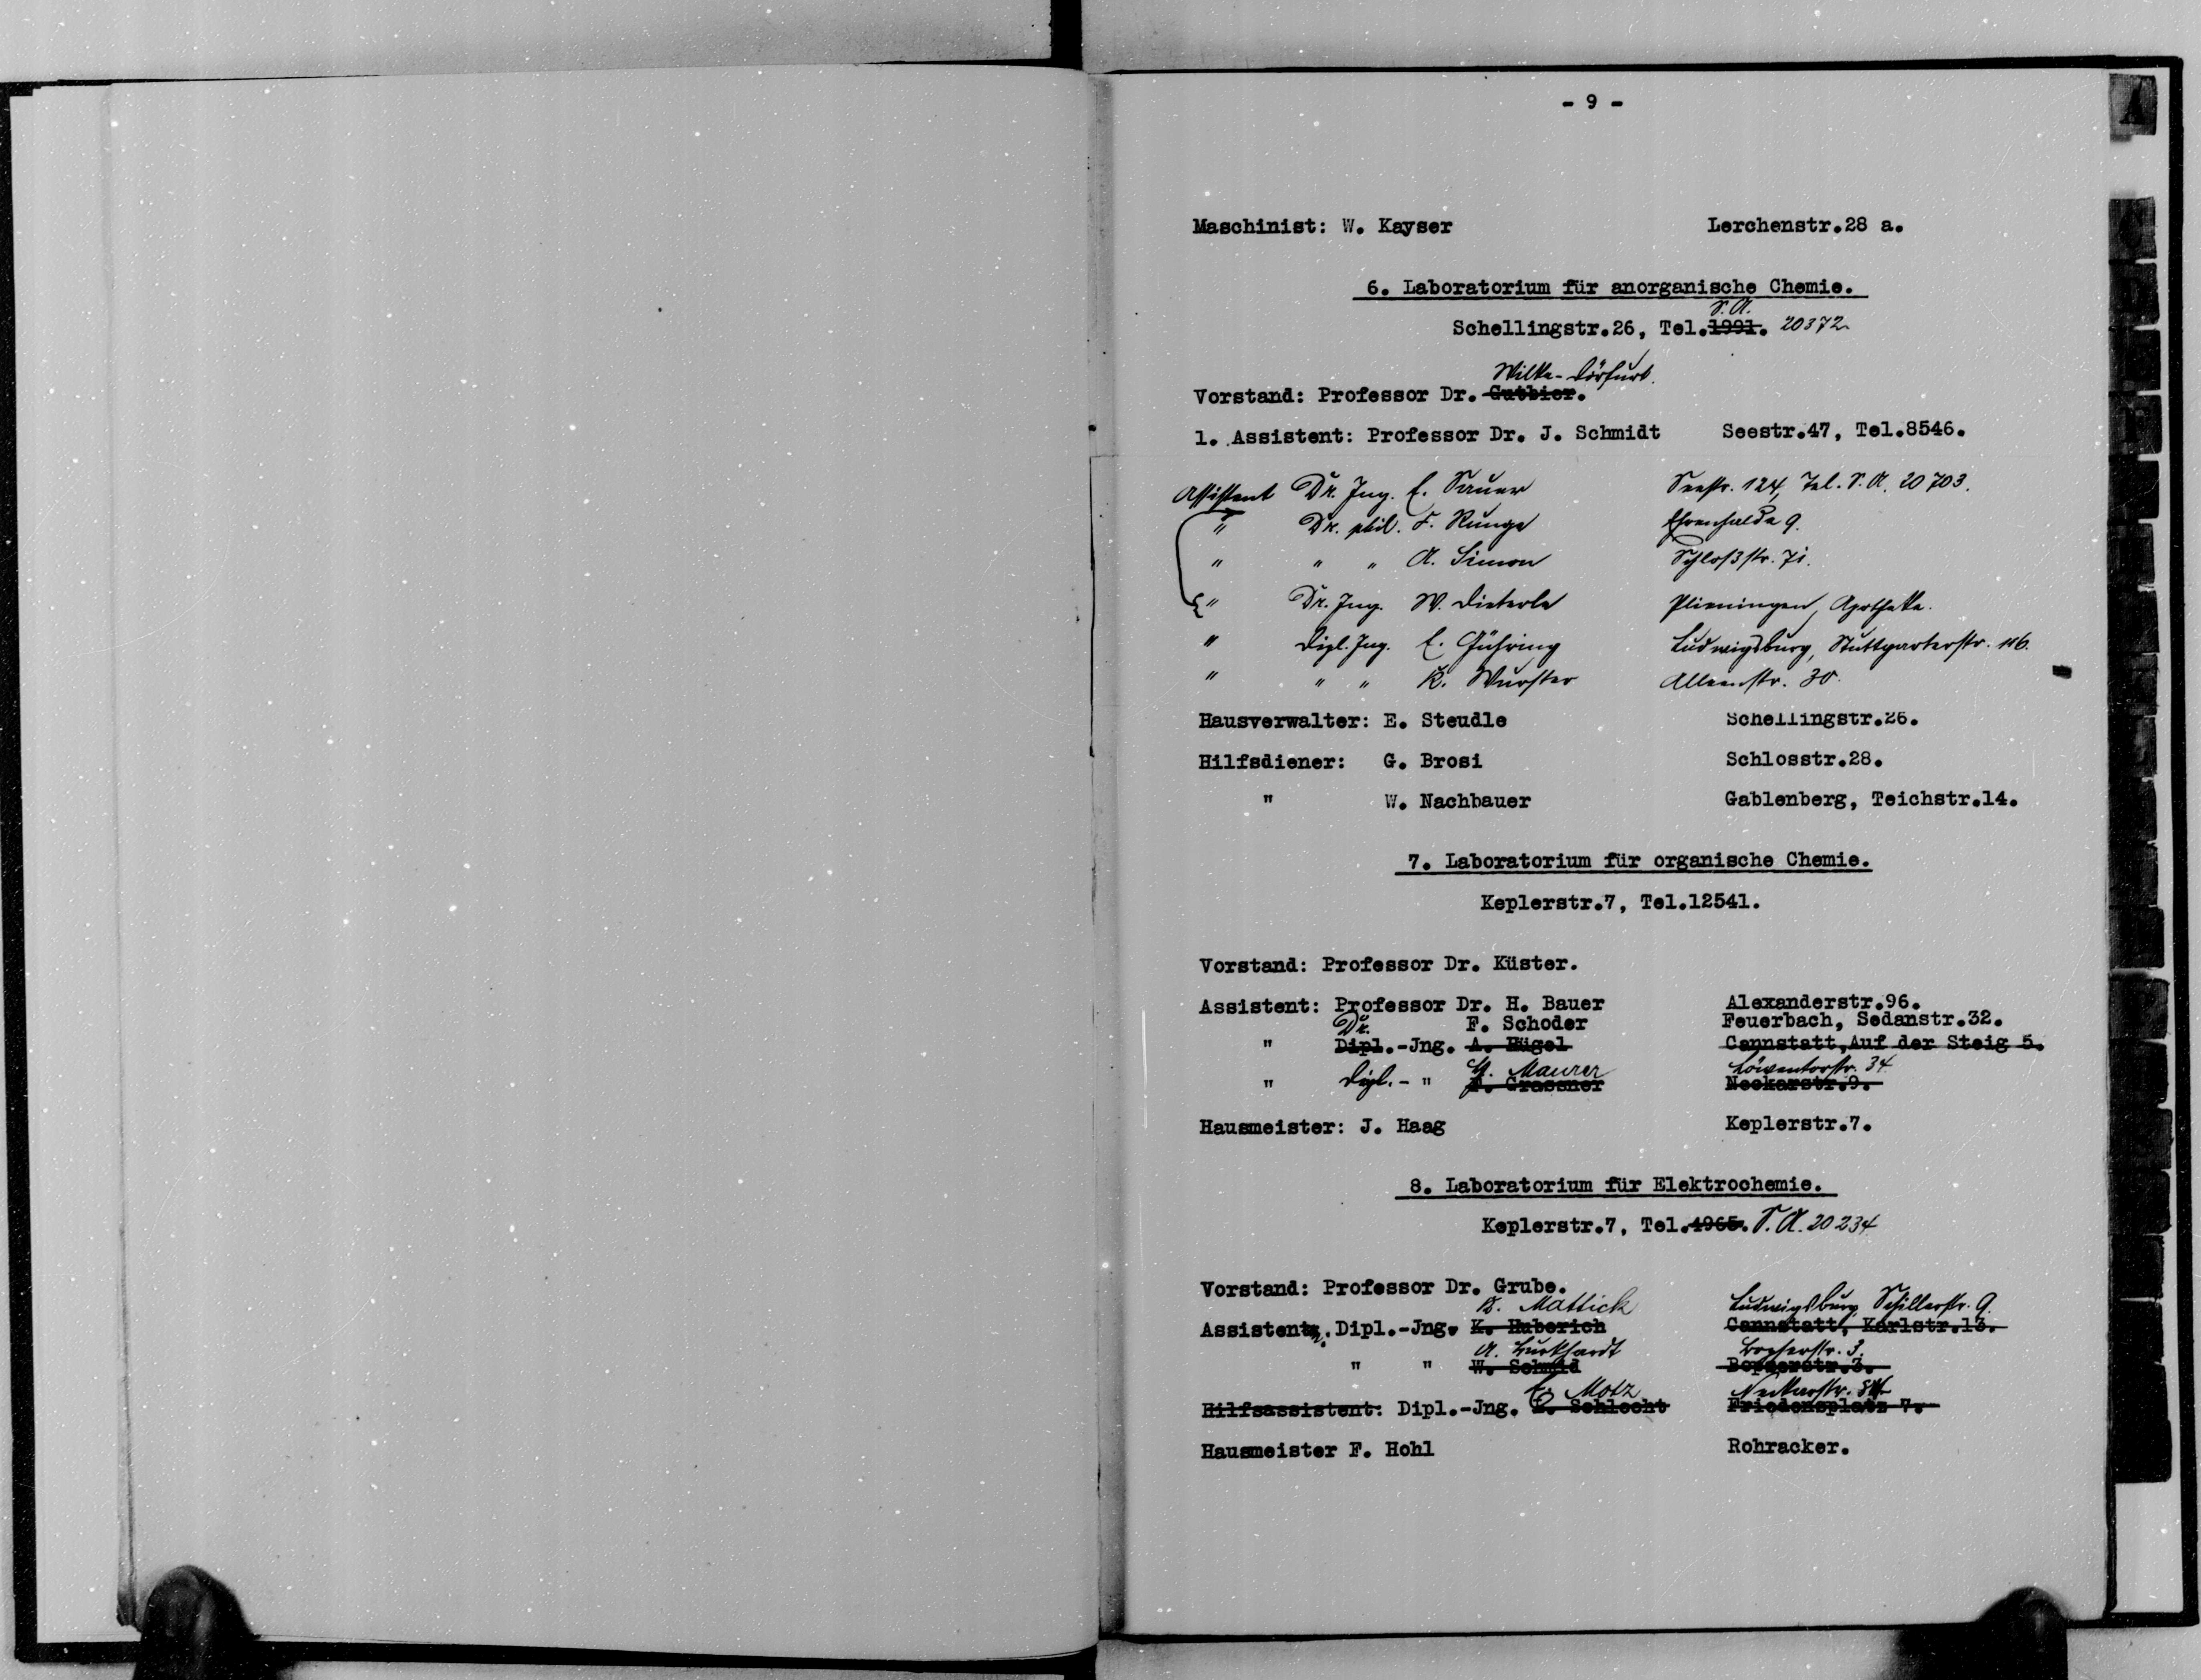 - 9 -
Maschinist: W. Kayser Lerchenstr.28 a.
6. Laboratorium für anorganische Chemie.
S.A.
Schellingstr.26, Tel.1991. 20372
Wilke-Dörfurt.
Vorstand: Professor Dr. Gutbier.
1. Assistent: Professor Dr. J. Schmidt Seestr.47, Tel.8546.
Assistent Dr. Ing. E. Sauer Seestr. 124, Tel. S.A. 20703.
" Dr. phil. F. Runge Ehrenhalde 9.
" " " A. Simon Schloßstr. 71.
" Dr. Ing. W. Dieterle Plieningen, Apotheke.
" Dipl. Ing. E. Gühring Ludwigsburg, Stuttgarterstr. 116.
" " " K. Wurster Alleenstr. 30.
Hausverwalter: E. Steudle Schellingstr.26.
Hilfsdiener: G. Brosi Schlosstr.28.
" W. Nachbauer Gablenberg, Teichstr.14.
7. Laboratorium für organische Chemie.
Keplerstr.7, Tel.12541.
Vorstand: Professor Dr. Küster.
Assistent: Professor Dr. H. Bauer Alexanderstr.96.
Dr. F. Schoder Feuerbach, Sedanstr.32.
" Dipl.-Jng. A. Hügel Cannstatt,Auf der Steig 5.
Maurer Löwentorstr. 34
" Dipl. - " F. Grassner Neckarstr.9.
Hausmeister: J. Haag Keplerstr.7.
8. Laboratorium für Elektrochemie.
Keplerstr.7, Tel.4965. S.A. 20234
Vorstand: Professor Dr. Grube.
K. Mattick Ludwigsburg, Schillerstr. 9.
Assistent Dipl.-Jng. K. Huberich Cannstatt, Karlstr.13.
A. Burkhardt Bopserstr. 3.
" " W. Schmid Bopserstr.3.
E. Motz Neckarstr.
Hilfsassistent: Dipl.-Jng. Schlecht Friedensplatz 7.
Hausmeister F. Hohl Rohracker.